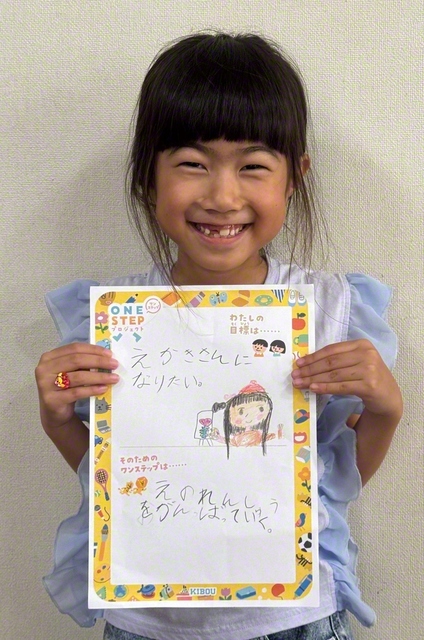 ONE
STEP
プロジェクト
わたしの
目標は……
えかきさんに
なりたい。
そのための
ワンステップは……
えのれんしゅう
をがんばっていく。
KIBOU